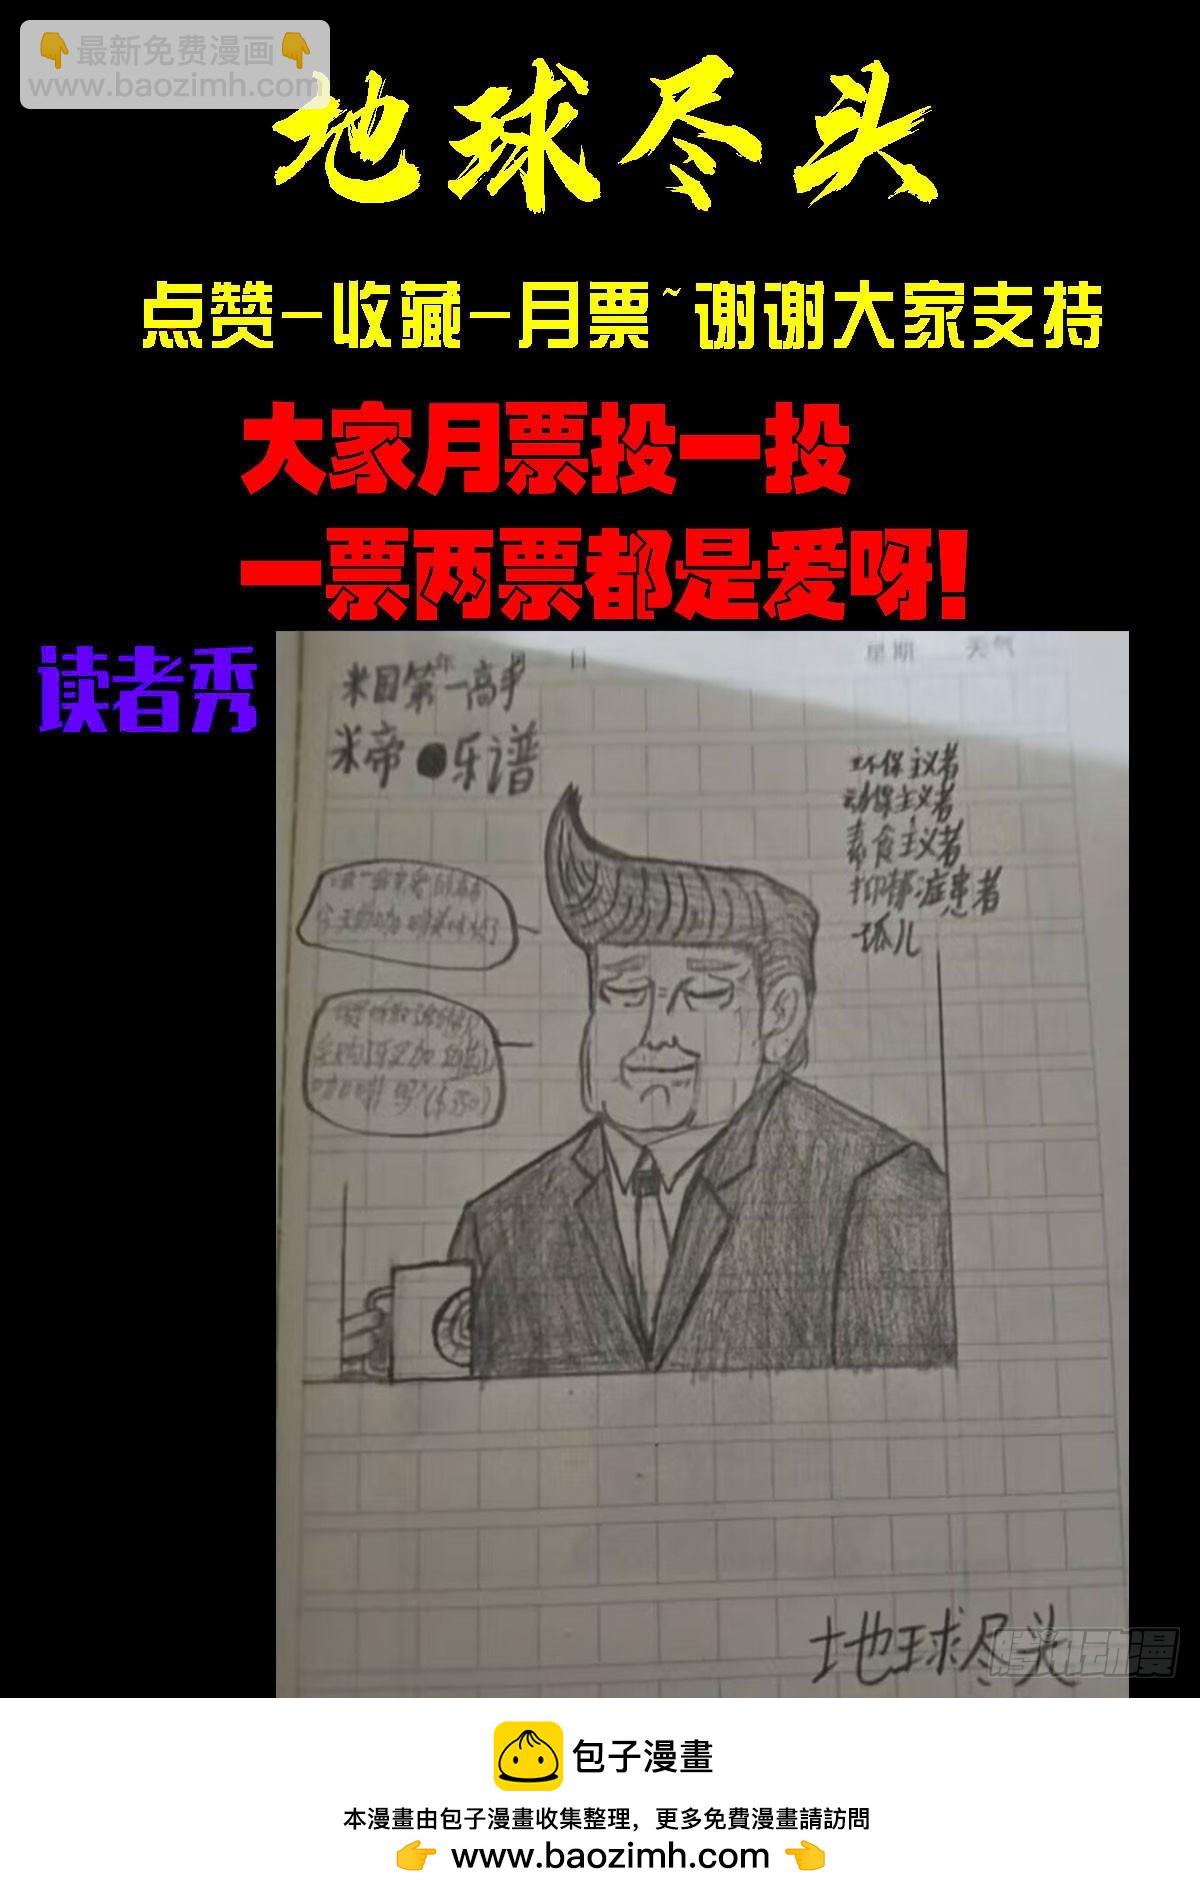 👇最新免费漫画👇
www.baozimh.com
地球尽头
点赞-收藏-月票~谢谢大家支持
大家月票投一投
一票两票都是爱呀!
读者秀
年 月 日 星期 天气
米国第一高手
米帝●乐谱
环保主义者
动保主义者
素食主义者
抑郁症患者
孤儿
地球尽头
腾讯动漫
包子漫畫
本漫畫由包子漫畫收集整理，更多免費漫畫請訪問
👉 www.baozimh.com 👈